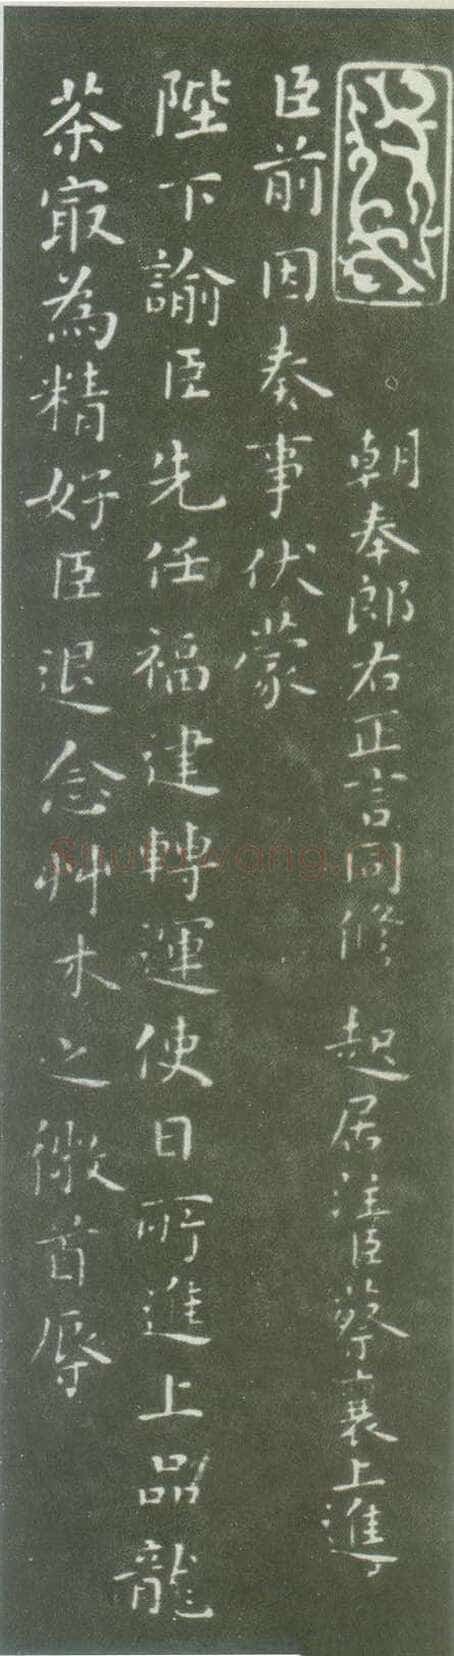 朝奉郎右正言同修起居注臣蔡襄上進
臣前因奏事伏蒙
陛下諭臣先任福建轉運使日所進上品龍
茶㝡為精好臣退念艸木之微首辱